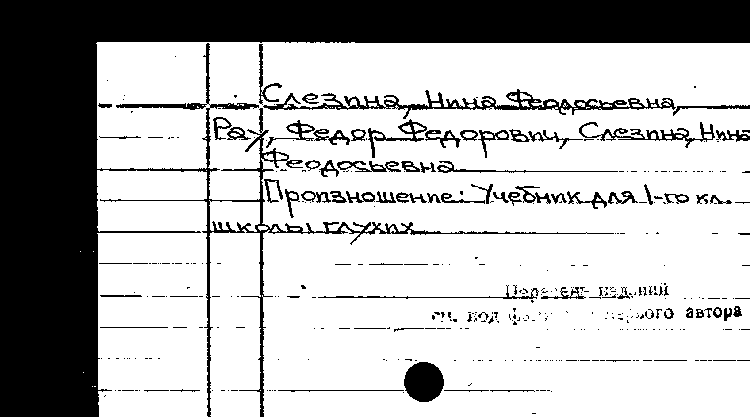 Слезина, Нина Феодосьевна,
Рау, Федор Федорович, Слезина, Нина
Феодосьевна
Произношение: Учебник для 1-го кл.
школы глухих
Перечень изданий
см. под первого автора